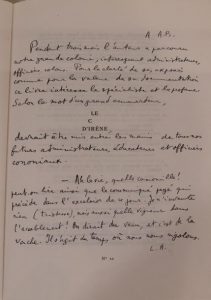 A A.B.
Pendant trois mois l'auteur a parcouru
notre grande colonie, interrogeant administrateurs,
officiers, colons. Par la clarté de son exposé
comme par la valeur de sa documentation
ce livre intéresse le spécialiste et le profane.
Selon le mot d'un grand connaisseur,
LE
C
D'IRÈNE
devrait être mis entre les mains de tous nos
futurs administrateurs, éducateurs et officiers
coloniaux.
— Ah! Irène, quelle canonille!
peut-on lire ainsi que le communiqué payé qui
précède dans l'Excelsior de ce jour. Je l'invente
rien (tristesse), mais aussi quelle vigueur dans
l'accablement! On dirait du vent, et c'est de la
vache. Il s'agit du temps où nous nous rigolons.
L. A.
N° 10